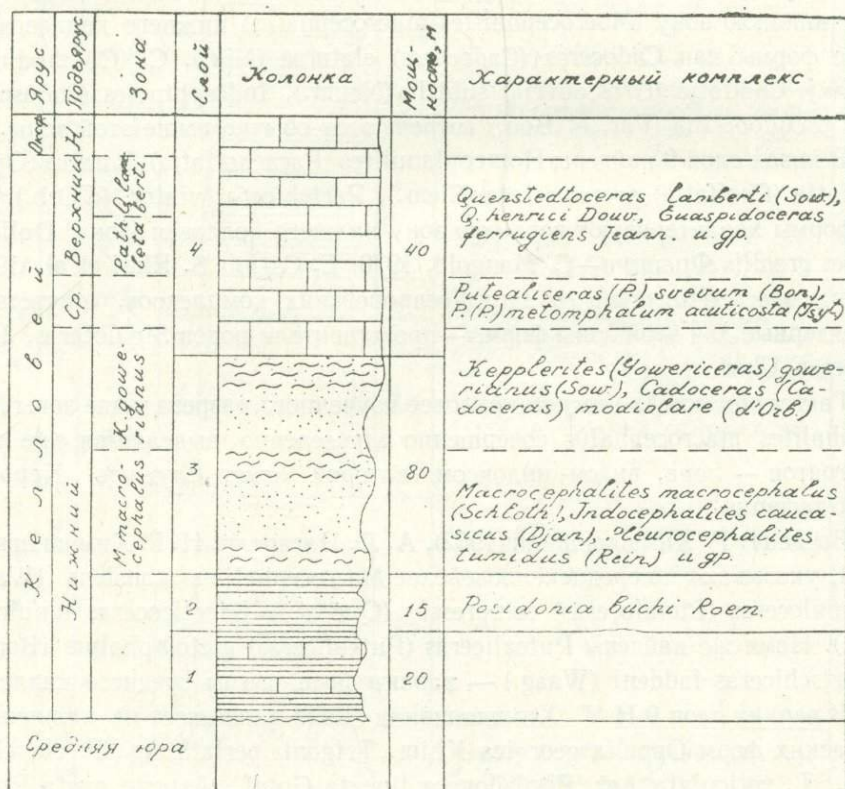 Ярус
Подъярус
Зона
Слой
Колонка
Мощность, м
Характерный комплекс
Н.
Верхний
Ср
Нижний
Келловей
Q. lam
berti
Path.
M. macro
cephalus
4
40
Quenstedtoceras lamberti (Sow),
Q. henrici Douv, Euaspidoceras
ferrugiens Jeann и др
Putealiceras (P.) svevum (Bon),
P. (P) metomphalum acuticosta (Tsyt)
Kepplerites (Gowericeras) gowe-
rianus (Sow), Cadoceras (Ca-
doceras) modiolare (d'Orb)
3
80
Macrocephalites macrocephalus
(Schloth), Indocephalites cauca-
sicus (Djan), Pleurocephalites
tumidus (Rein) и др
2
15
Posidonia buchi Roem.
1
20
Средняя юра